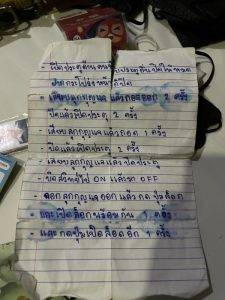 เปิดประตูด้านคนขับ
ฝากระโปรงหน้าก็ปิด
- เสียบลูกกุญแจ แล้วถอดออก 2 ครั้ง
ปิดแล้วเปิดประตู 2 ครั้ง
- เสียบลูกกุญแจ แล้วถอด 1 ครั้ง
- ปิด แล้วเปิดประตู 2 ครั้ง
- เสียบลูกกุญแจ แล้วปิดประตู
- บิดสวิทช์ไป ON แล้วมา OFF
- ถอดลูกกุญแจออก แล้วกด ปุ่มล็อก
และเปิดล็อกพร้อมกัน 1 ครั้ง
- และกดปุ่มเปิดล็อคอีก 1 ครั้ง